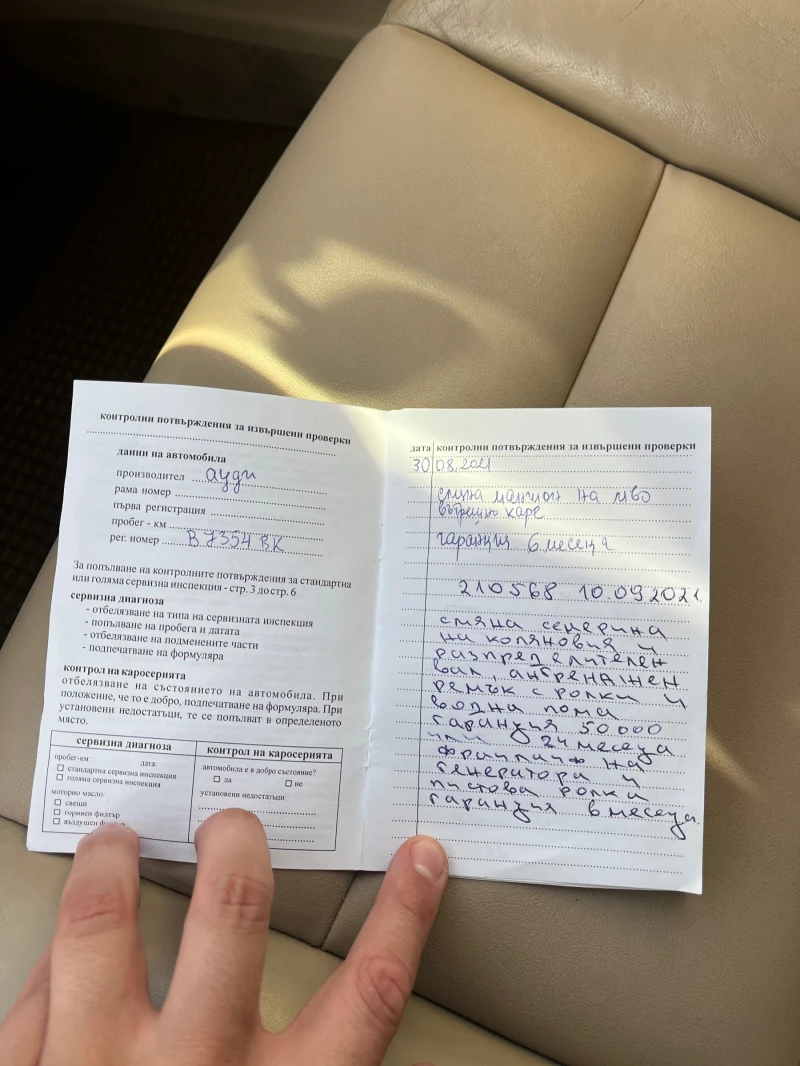 контролни потвърждения за извършени проверки
данни на автомобила
производител ауди
рама номер
първа регистрация
пробег - км
рег. номер B7354BK
За попълване на контролните потвърждения за стандартна
или голяма сервизна инспекция - стр. 3 до стр. 6
сервизна диагноза
- отбелязване на типа на сервизната инспекция
- попълване на пробега и датата
- отбелязване на подменените части
- подпечатване на формуляра
контрол на каросерията
отбелязване на състоянието на автомобила. При
положение, че то е добро, подпечатване на формуляра. При
установени недостатъци, те се попълват в определеното
място.
сервизна диагноза
пробег-км: дата:
стандартна сервизна инспекция
голяма сервизна инспекция
моторно масло:
свещи
горивен филтър
въздушен
контрол на каросерията
автомобила е в добро състояние?
да не
установени недостатъци:
дата контролни потвърждения за извършени проверки
30.08.2021
смяна маншон на
вътрешно каре
гаранция 6 месеца
210568 10.09.2021
смяна семерина
на коляновия и
разпределителен
вал, ангренажен
ремък с ролки и
водна пома
гаранция 50000
или 24 месеца
фрийлиф на
генератора и
пистова ролки
гаранция 6 месеца.